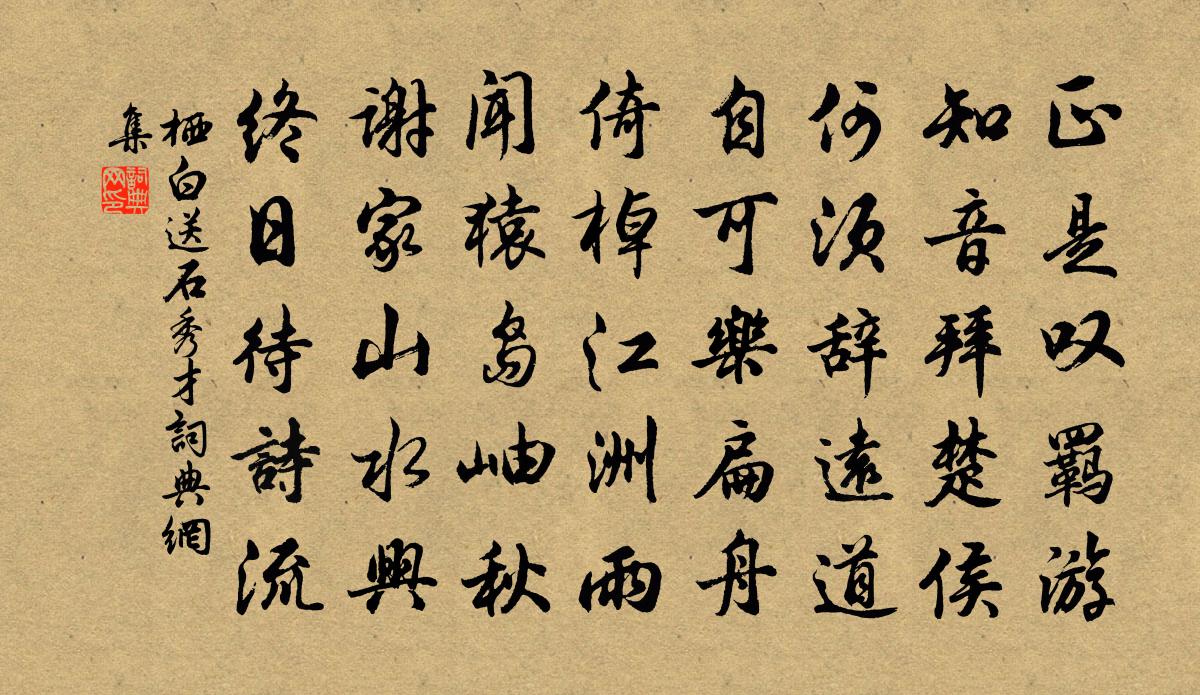 正是叹羁游
知音拜楚侯
何须辞远道
自可樂扁舟
倚棹江洲雨
闻猿岛岫秋
谢家山水興
终日待詩流
栖白送石秀才詞典網
集
詞典
网印